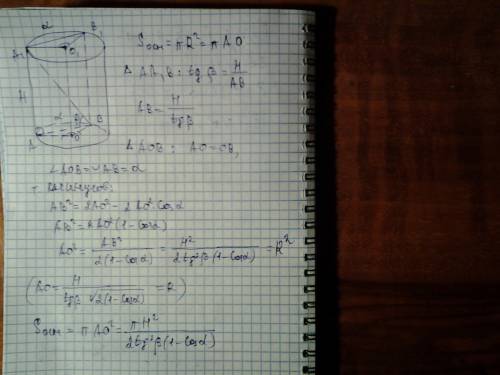 α
A₁ B₁
O₁
H
α β B
A O
Sосн = πR² = πAO
ΔAA₁B : tg β = H/AB
AB = H/tgβ
ΔAOB : AO = OB,
∠AOB = ◡AB = α
т. косинусов:
AB² = 2AO² - 2AO² cosα
AB² = 2AO² (1 - cosα)
AO² = AB²/2(1-cosα) = H²/2tg²β(1-cosα) = R²
(AO = H/tgβ √2(1-cosα) = R)
Sосн = πAO² = πH²/2tg²β(1-cosα)